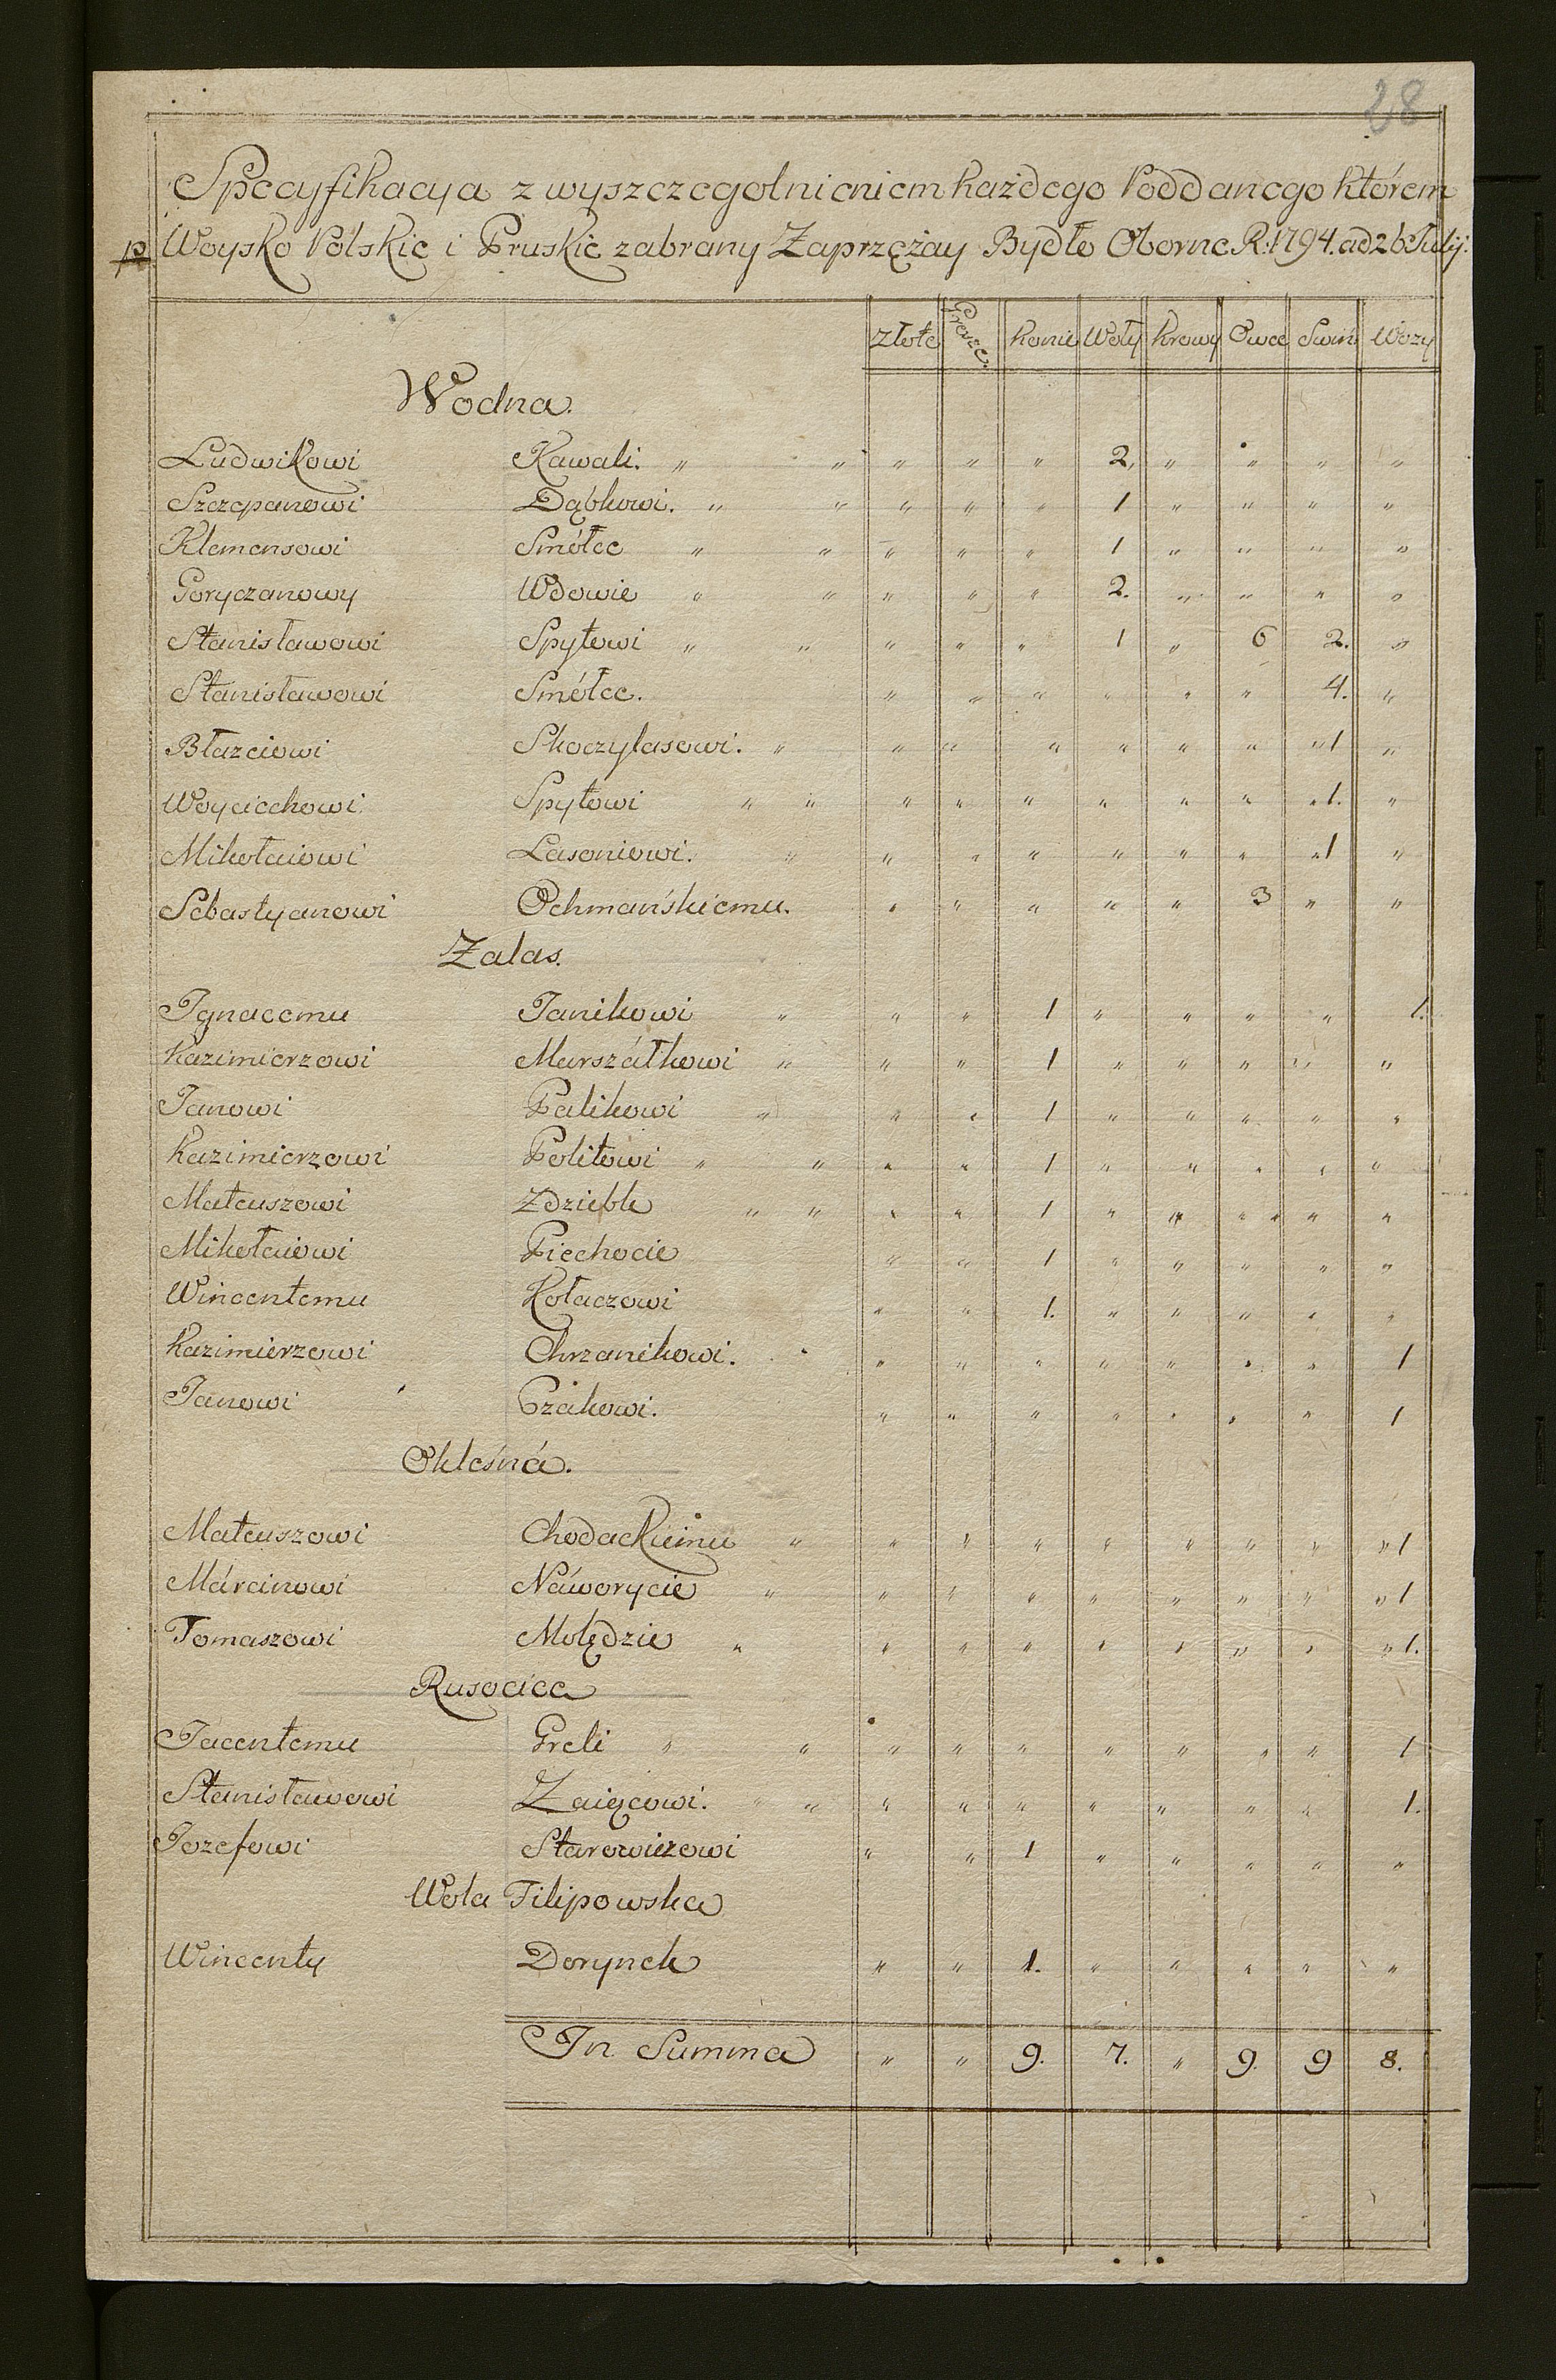 28
Specyfikacya z wyszczegolnieniem każdego Poddanego którem
p Woysko Polskie i Pruskie zabrany Zaprzężay Bydło Oborne R: 1794. ad 26 Julij.
złote Grosze. konie Woły krowy Owce Swin Wozy
Wodna.
Ludwikowi Kawali. " " " " " 2, " " " "
Szczepanowi Dąbkowi. " " " " " 1 " " " "
Klemensowi Smółce " " " " " 1 " " " "
Goryczanowy Wdowie " " " " " 2. " " " "
Stanisławowi Spytowi " " " " " 1 " 6 2. "
Stanisławowi Smółce. " " " " " " 4. "
Błazeiowi Skoczylasowi. " " " " " " " " 1 "
Woyciechowi Spytowi " " " " " " " " " 1. "
Mikołaiowi Lasoniowi. " " " " " " " " 1 "
Sebastyanowi Ochmańskiemu. " " " " " 3 " "
Zalas.
Ignacemu Janikowi " " " 1 " " " " 1.
Kazimierzowi Marszáłkowi " " " 1 " " " " "
Janowi Palikowi " " " 1 " " " " "
Kazimierzowi Politowi " " " " 1 " " " " "
Mateuszowi Zdziebk " " " " 1 " " " " "
Mikołaiowi Piechocie " " 1 " " " " "
Wincentemu Kołaczowi " " 1. " " " " "
Kazimierzowi Chrzanikowi. " " " " " " " 1
Janowi Bżákowi. " " " " " " " 1
Okleśná.
Mateuszowi Chodackiemu " " " " " " " " " 1
Márcinowi Náworycie " " " " " " " " " 1
Tomaszowi Molędzie " " " " " " " " " 1.
Rusocice
Jacentemu Greli " " " " " " " " " 1
Stanisławowi Zaięcowi. " " " " " " " " " 1.
Jozefowi Starowiczowi " " 1 " " " " "
Wola Filipowska
Wincenty Dorynek " " 1. " " " " "
In Summa " " 9. 7. " 9. 9 8.